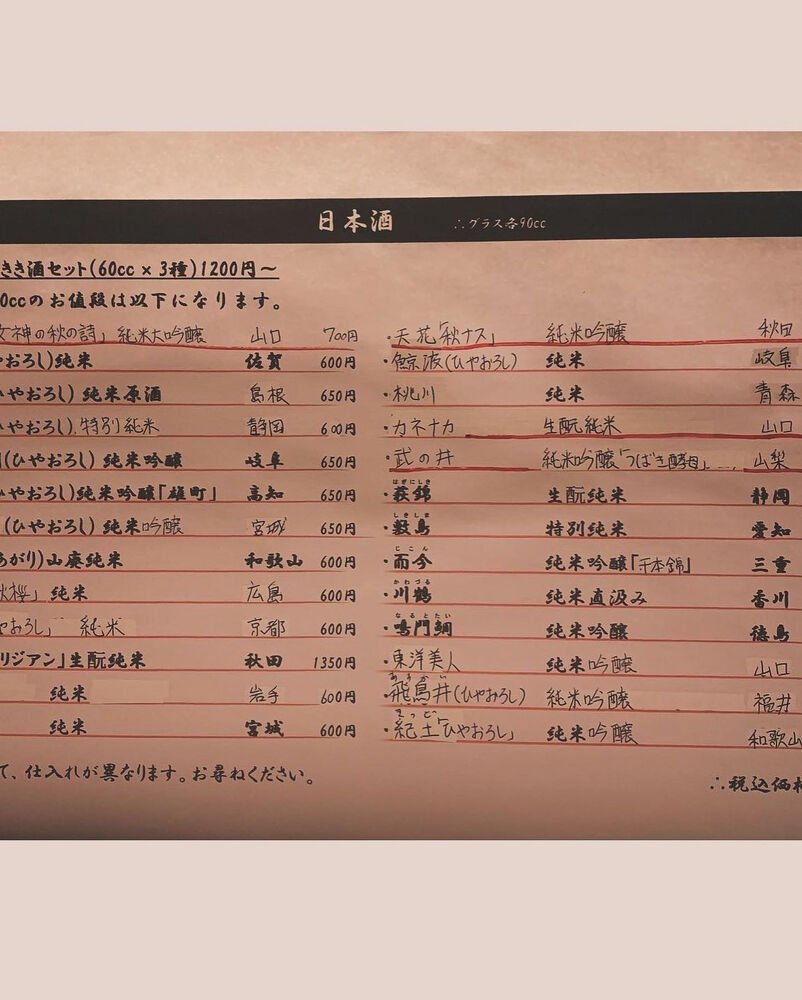 日本酒 ∴グラス各90cc
きき酒セット(60cc × 3種)1200円〜
0ccのお値段は以下になります。
女神の秋の詩」 純米大吟醸 山口 700円
やおろし)純米 佐賀 600円
ひやおろし) 純米原酒 島根 650円
ひやおろし). 特別純米 静岡 600円
(ひやおろし) 純米吟醸 岐阜 650円
ひやおろし)純米吟醸「雄町」 高知 650円
(ひやおろし) 純米吟醸 宮城 650円
あがり)山廃純米 和歌山 600円
秋桜」 純米 広島 600円
やおろし」 純米 京都 600円
リジアン」生酛純米 秋田 1350円
純米 岩手 600円
純米 宮城 600円
て、仕入れが異なります。お尋ねください。
・天花「秋ナス」 純米吟醸 秋田
・鯨波(ひやおろし) 純米 岐阜
・桃川 純米 青森
・カネナカ 生酛純米 山口
・武の井 純米吟醸「つばき酵母」... 山梨
はぎにしき
・萩錦 生酛純米 静岡
しきしま
・敷島 特別純米 愛知
じこん
・而今 純米吟醸「千本錦」 三重
かわつる
・川鶴 純米直汲み 香川
なるとたい
・鳴門鯛 純米吟醸 徳島
・東洋美人 純米吟醸 山口
あすかい
・飛鳥井(ひやおろし) 純米吟醸 福井
きっど
・紀土「ひやおろし」 純米吟醸 和歌山
∴税込価格